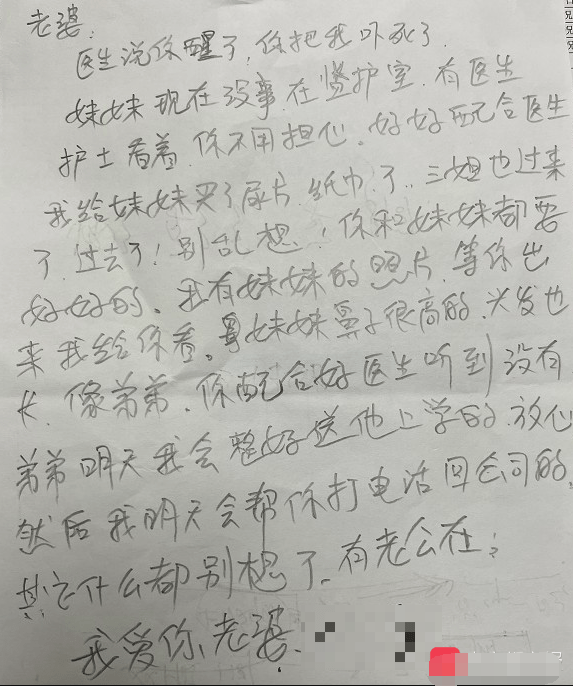 老婆:
医生说你醒了,你把我吓死了
妹妹现在没事,在监护室.有医生
护士看着.你不用担心.好好配合医生
我给妹妹买了尿片.纸巾了.三姐也过来
了.过去了!别乱想!你和妹妹都要
好好的。我有妹妹的照片.等你出
来我给你看。妹妹鼻子很高的.头发也
长.像弟弟.你配合好医生听到没有
弟弟明天我会整好送他上学的.放心
然后我明天会帮你打电话回公司的.
其它什么都别想了.有老公在;
我爱你、老婆.